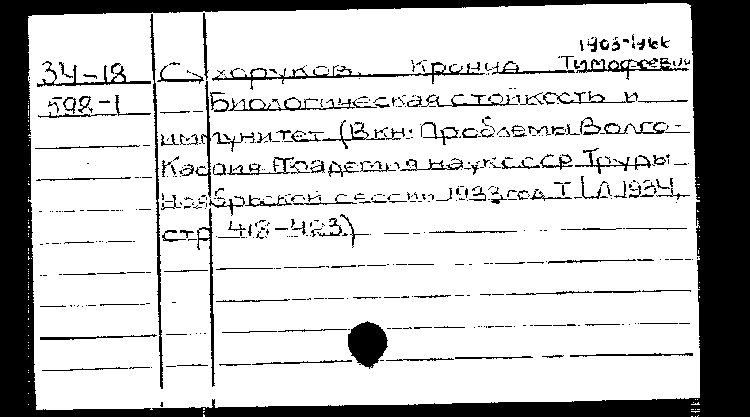 1903-1966
34-18 Сухоруков, Кронид Тимофеевич
598-1 Биологическая стойкость и
иммунитет (В кн: Проблемы Волго-
Каспия Академия наук СССР. Труды
Ноябрьской сессии 1933 год Т I Л 1934,
стр 418-423)